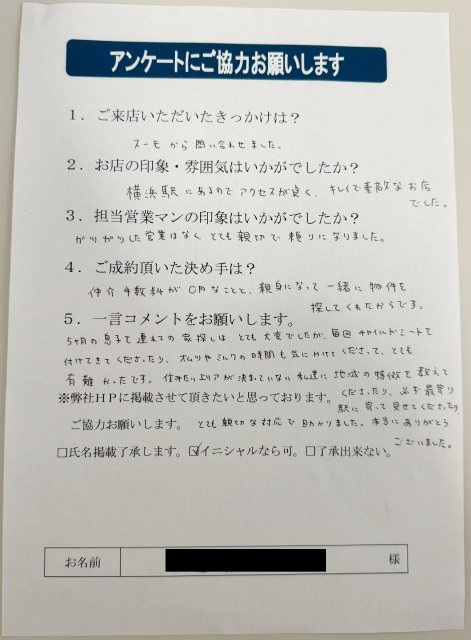 アンケートにご協力お願いします
1．ご来店いただいたきっかけは？
スーモから問い合わせました。
2．お店の印象・雰囲気はいかがでしたか？
横浜駅にあるのでアクセスが良く、キレイで素敵なお店
でした。
3．担当営業マンの印象はいかがでしたか？
ガツガツした営業はなくとても親切で頼りになりました。
4．ご成約頂いた決め手は？
仲介手数料が0円なことと、親身になって一緒に物件を
探してくれたからです。
5．一言コメントをお願いします。
5ヶ月の息子を連れての家探しはとても大変でしたが、毎回チャイルドシートを
付けてきてくださったり、オムツやミルクの時間も気にかけてくださって、とても
有難かったです。住みたいエリアが決まっていない私達に地域の特徴を教えて
くださったり、必ず最寄り
※弊社HPに掲載させて頂きたいと思っております。
駅に寄って見せてくださったり、
ご協力お願いします。
とても親切な対応で助かりました。本当にありがとう
ございました。
□氏名掲載了承します。☑イニシャルなら可。□了承出来ない。
お名前 様